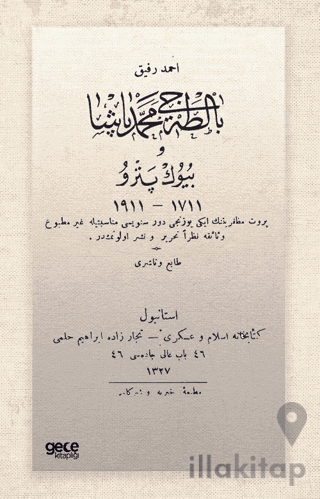 احمد رفيق
بالطه جى محمد پاشا
و
بيوك پترو
١٧١١ - ١٩١١
پروت مظفريتنك ايكى يوزنجى دور سنويسى مناسبتيله غير مطبوع
وثائقه نظراً تحرير و نشر اولونمشدر .
طابع وناشرى
استانبول
كتابخانه اسلام و عسكرى — تجار زاده ابراهيم حلمى
٤٦ باب عالى جاده سى ٤٦
١٣٢٧
مطبعهٔ خيريه و شركاسى
gece
kitaplığı
illakitap